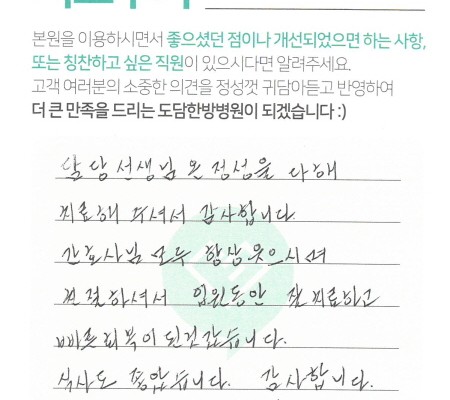 본원을 이용하시면서 좋으셨던 점이나 개선되었으면 하는 사항,
또는 칭찬하고 싶은 직원이 있으시다면 알려주세요.
고객 여러분의 소중한 의견을 정성껏 귀담아듣고 반영하여
더 큰 만족을 드리는 도담한방병원이 되겠습니다 :)
담당선생님 온 정성을 다해
치료해 주셔서 감사합니다
간호사님 모두 항상 웃으시며
친절하셔서 입원동안 잘 치료하고
빠른 회복이 된것 같습니다.
식사도 좋았습니다. 감사합니다.